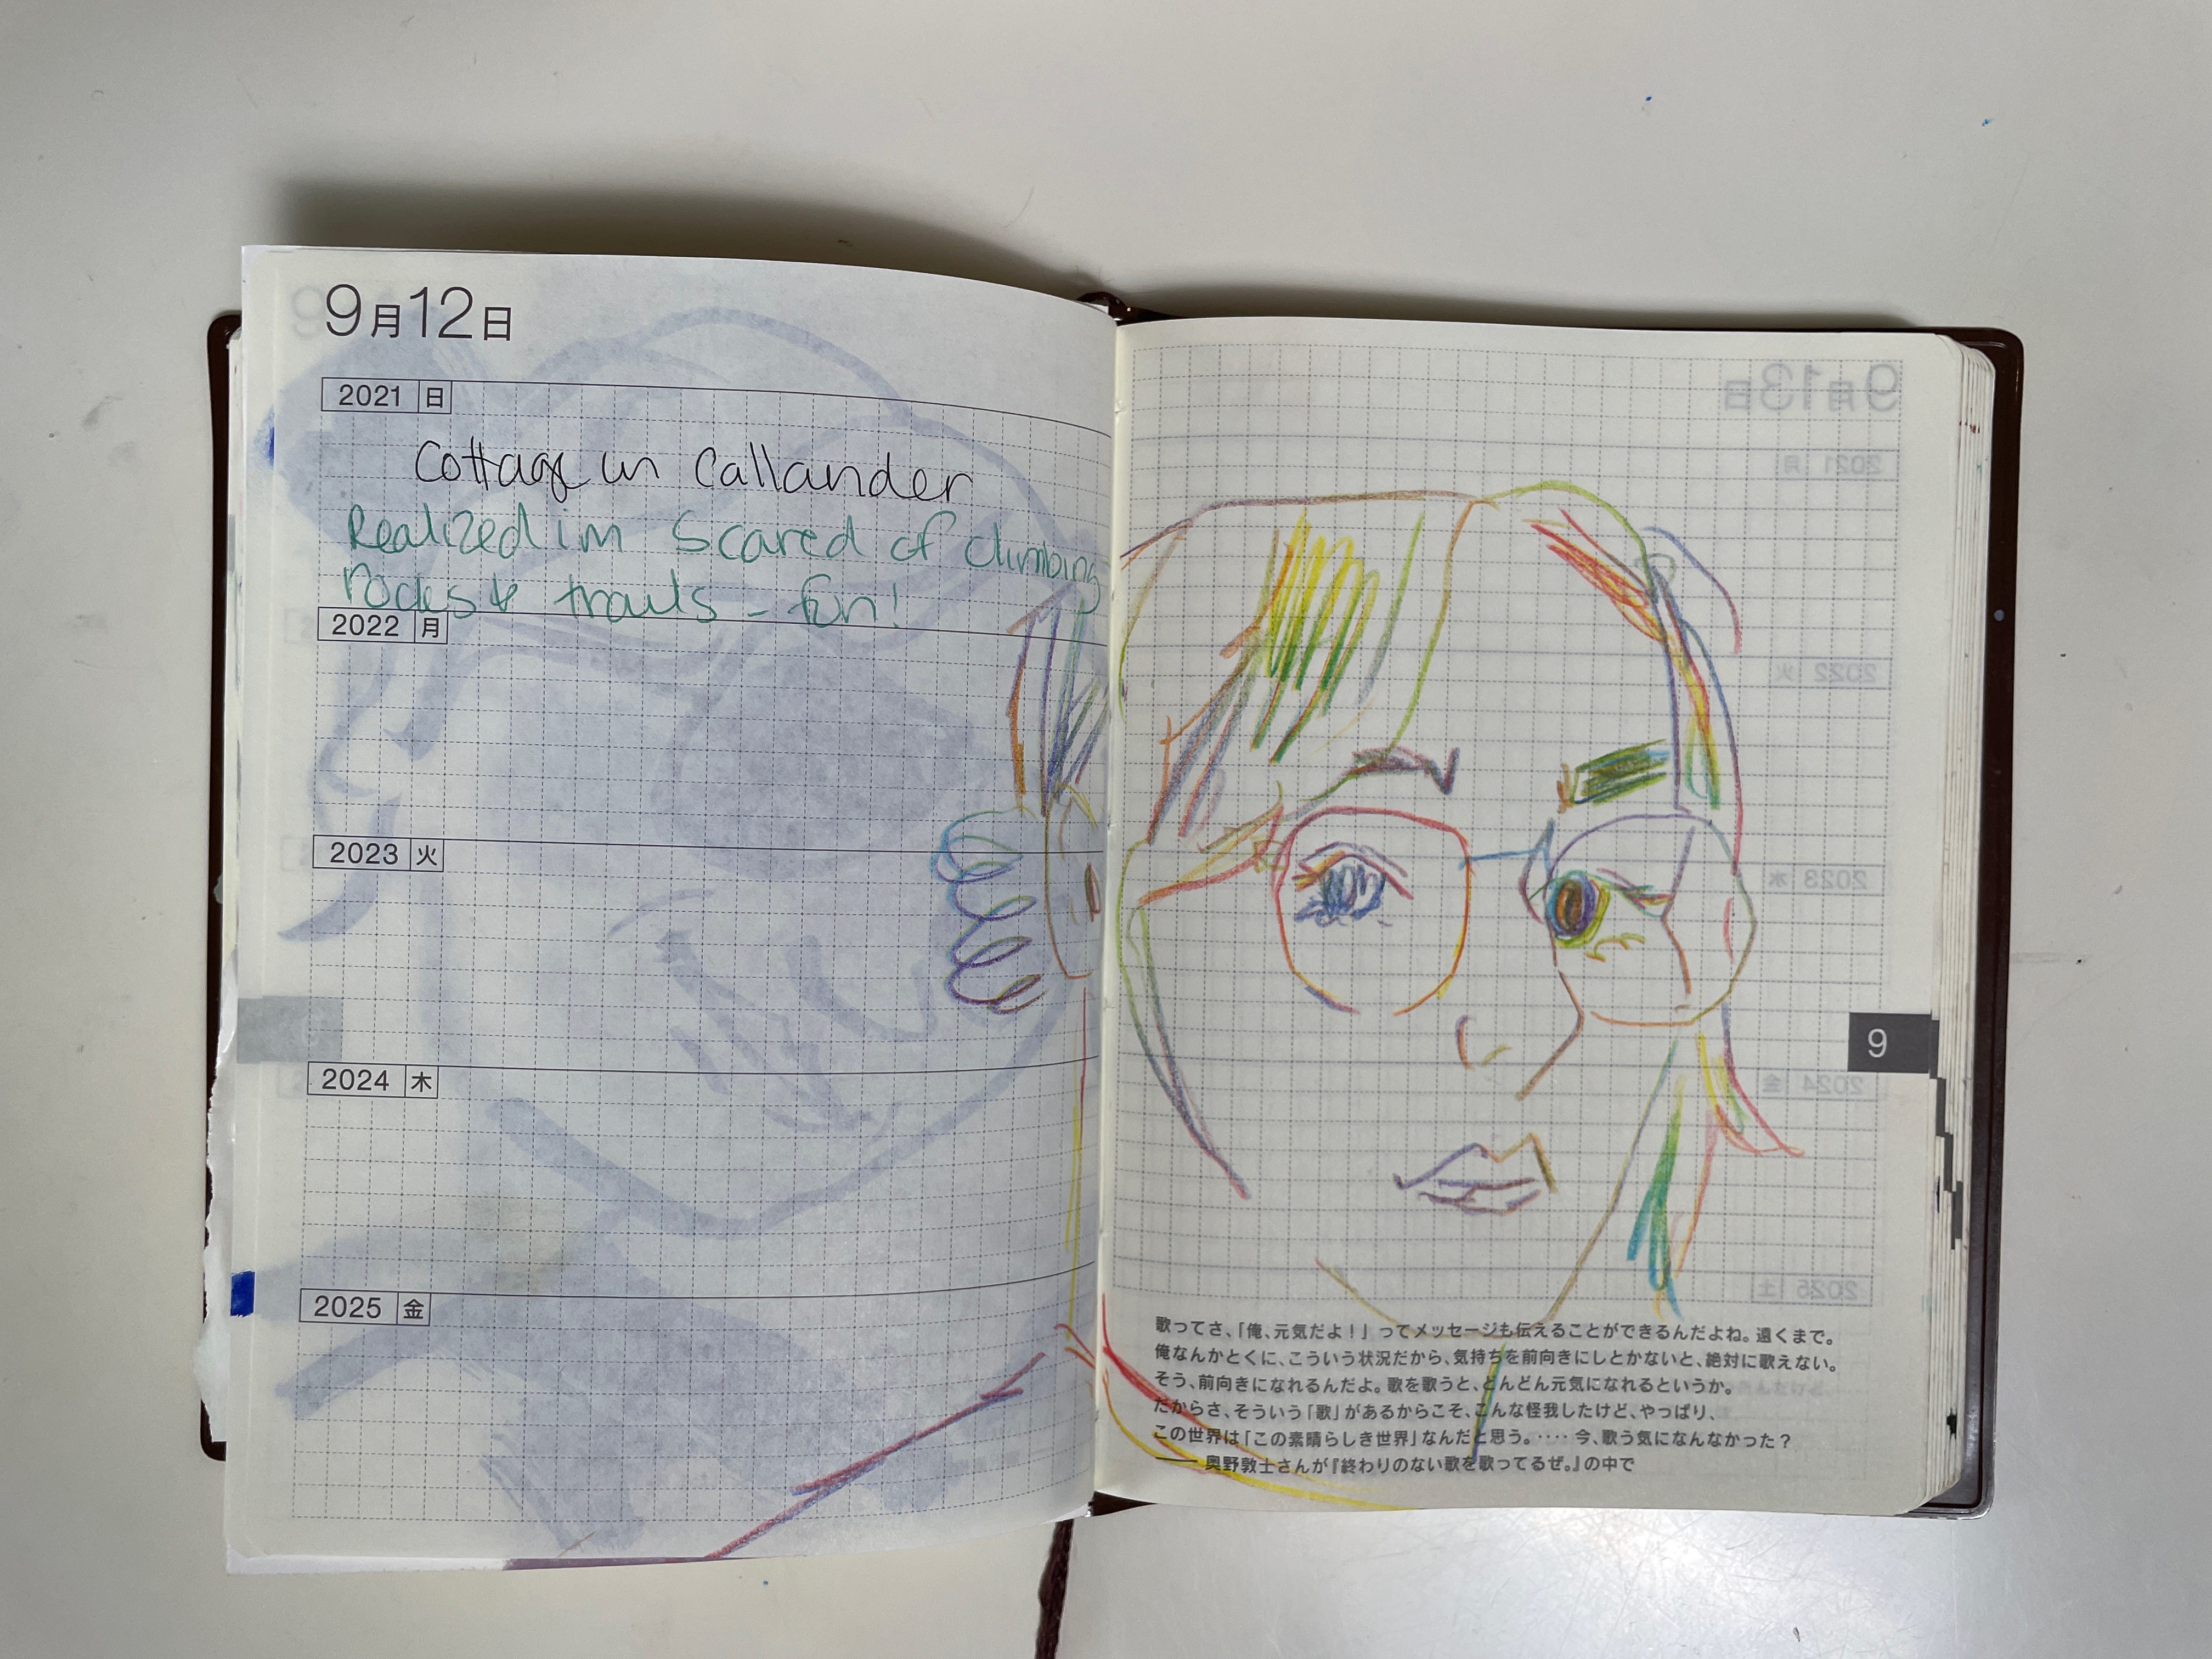 9月12日
2021 日
Cottage in Callander
Realized im scared of climbing
rocks & trails - fun!
2022 月
2023 火
2024 木
2025 金
9月13日
2021 月
2022 火
2023 水
2024 金
2025 土
9
歌ってさ、「俺、元気だよ！」ってメッセージも伝えることができるんだよね。遠くまで。
俺なんかとくに、こういう状況だから、気持ちを前向きにしとかないと、絶対に歌えない。
そう、前向きになれるんだよ。歌を歌うと、どんどん元気になれるというか。
だからさ、そういう「歌」があるからこそ、こんな怪我したけど、やっぱり、
この世界は「この素晴らしき世界」なんだと思う。‥‥今、歌う気になんなかった？
── 奥野敦士さんが『終わりのない歌を歌ってるぜ。』の中で